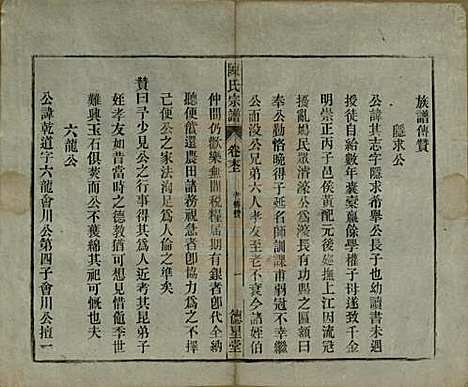 族譜傳贊
隱求公
公諱其志字隱求希舉公長子也幼讀書未
授徒自給數年囊橐贏餘學權子母遂致千金
明崇正丙子邑侯黃配元後廵撫上江因流寇
擾亂媯民眾濬濠公於濠有功興之區額曰
奉公勤恪晚得子延名師訓課甫弱冠不幸繼
公而沒公兄弟六人孝友至老不衰今諸姪伯
陳氏宗譜
卷 傳贊
一
德星堂
仲間仍歡樂無間稅糧屆期有銀者卽代全納
聽便歡還農田諸務視急卽協力為之不擇
己便公之家法洵足為人倫之準矣
贊曰予少見公行事得其為人近者其昆弟子
姪孝友如昔當時之德教猶可想見惜龍季世
難興玉石俱焚公不獲綿其祀可慨也夫
六龍公
公諱乾道字六龍會川公第四子會川公擅一